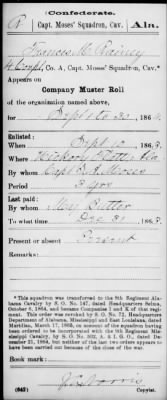 (Confederate.)
P Capt. Moses' Squadron, Cav. Ala.
Francis M. Rainey
4 Corpl, Co. A, Capt. Moses' Squadron, Cav.*
Appears on
Company Muster Roll
of the organization named above,
for Sept 1 to 30, 1864.
Enlisted:
When Sept 10, 1863.
Where Hickory Flatts Ala
By whom Capt B. F. Moses
Period 3 yrs
Last paid:
By whom Maj Butler
To what time Dec 31, 1863.
Present or absent Present
Remarks:
*This squadron was transferred to the 8th Regiment Alabama Cavalry by S. O. No. 147, dated Headquarters Selma, October 6, 1864, and became Companies I and K of that regiment. This order was revoked by S. O. No. 73, Headquarters Department of Alabama, Mississippi and East Louisiana, dated Meridian, March 17, 1865, on account of the squadron having been ordered to be incorporated with the 9th Regiment Mississippi Cavalry, by S. O. No. 302, A. & I. G. O., dated December 21, 1864, but neither of the last two orders appears to have been carried out because of the close of the war.
Book mark:
(642)
Copyist.